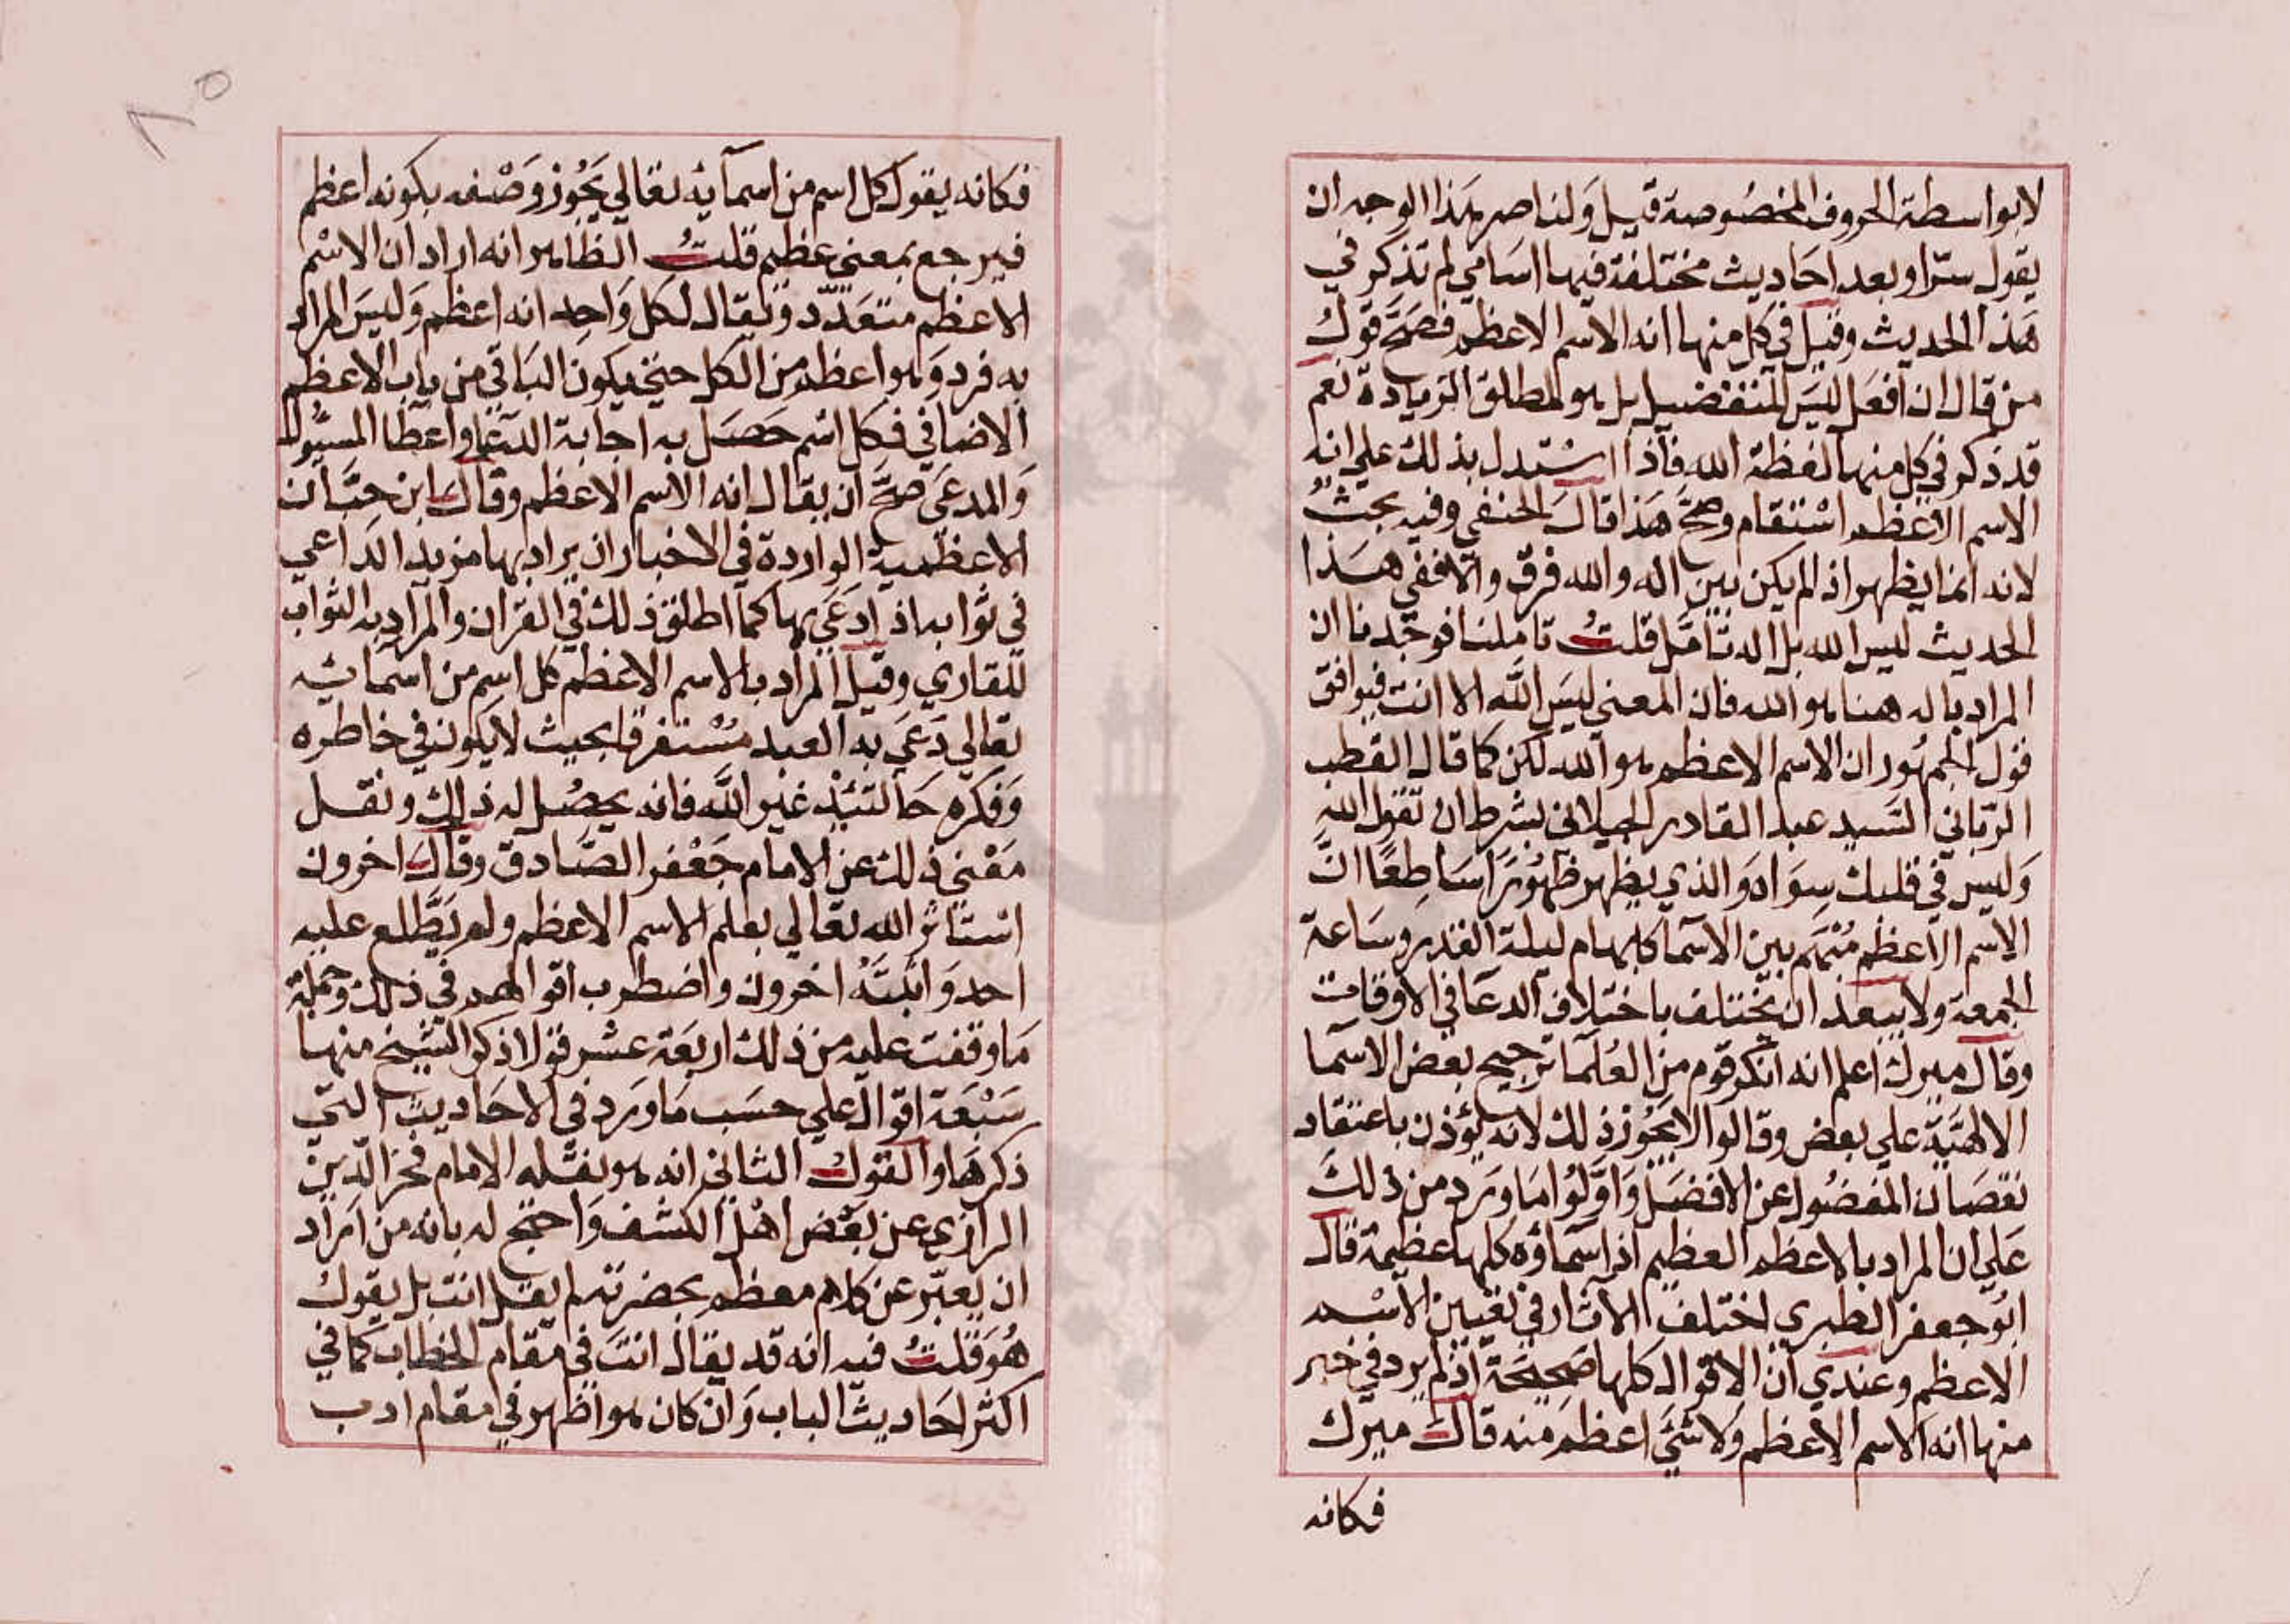 لابواسطة الحروف المخصوصة قيل ولناصر هذا الوجه ان
يقول سترا وبعد احاديث مختلفة فيها اسامي لم تذكر في
هذا الحديث وقيل في كل منها انه الاسم الاعظم فصح قول
من قال ان افعل ليس للتفضيل بل هو لمطلق الزيادة نعم
قد ذكر في كل منها لفظة الله فاذا استدل بذلك علي انه
الاسم الاعظم استقام وصح هذا قال الحنفي وفيه بحث
لانه انما يظهر اذ لم يكن بين اله والله فرق والا ففي هذا
الحديث ليس الله بل اله تامل قلت تاملنا فوجدنا ان
المراد باله هنا هو الله فان المعني ليس الله الا انت فيوافق
قول الجمهور ان الاسم الاعظم هو الله لكن كما قال القطب
الرباني السيد عبد القادر الجيلاني بشرط ان تقول الله
وليس في قلبك سواه والذي يظهر ظهورا ساطعا ان
الاسم الاعظم مبهم بين الاسما كلها م ليلة القدر وساعة
الجمعة ولا يبعد ان يختلف باختلاف الدعا في الاوقات
وقال ميرك اعلم انه انكر قوم من العلما ترجيح بعض الاسما
الالهية علي بعض وقالوا لا يجوز ذلك لانه يؤذن باعتقاد
نقصان المفضول عن الافضل واولوا ما ورد من ذلك
علي ان المراد بالاعظم العظيم اذ اسماؤه كلها عظيمة قال
ابو جعفر الطبري اختلف الاثار في تعيين الاسم
الاعظم وعندي ان الاقوال كلها صحيحة اذ لم يرد في خبر
منها انه الاسم الاعظم ولا شي اعظم منه قال ميرك
فكانه
٨٥
فكانه يقول كل اسم من اسمايه تعالي يجوز وصفه بكونه اعظم
فيرجع بمعني عظيم قلت الظاهر انه اراد ان الاسم
الاعظم متعدد ويقال لكل واحد انه اعظم وليس المراد
به فرد وهو اعظم من الكل حتي يكون الباقي من باب الاعظم
الاضافي فكل اسم حصل به اجابة الدعا واعطا المسئول
والمدعي صح ان يقال انه الاسم الاعظم وقال ابن حبان
الاعظمية الواردة في الاخبار ان يراد بها مزيد الداعي
في ثوابه اذ ادعي بها كما اطلق ذلك في القران والمراد به الثواب
للقاري وقيل المراد بالاسم الاعظم كل اسم من اسمائه
تعالي دعي به العبد مستغرقا بحيث لا يكون في خاطره
وفكره حالتئذ غير الله فانه يحصل له ذلك ونقل
معني ذلك عن الامام جعفر الصادق وقال اخرون
استاثر الله تعالي بعلم الاسم الاعظم ولم يطلع عليه
احد واثبته اخرون واضطرب اقوالهم في ذلك وجملة
ما وقفت عليه من ذلك اربعة عشر قولا ذكر الشيخ منها
سبعة اقوال علي حسب ما ورد في الاحاديث التي
ذكرها والقول الثاني انه هو نقله الامام فخر الدين
الرازي عن بعض اهل الكشف واحتج له بانه من اراد
ان يعبر عن كلام معظم بحضرته لم يقل انت بل يقول
هو قلت فيه انه قد يقال انت في مقام الخطاب كما في
اكثر احاديث الباب وان كان هو اظهر في مقام ادب